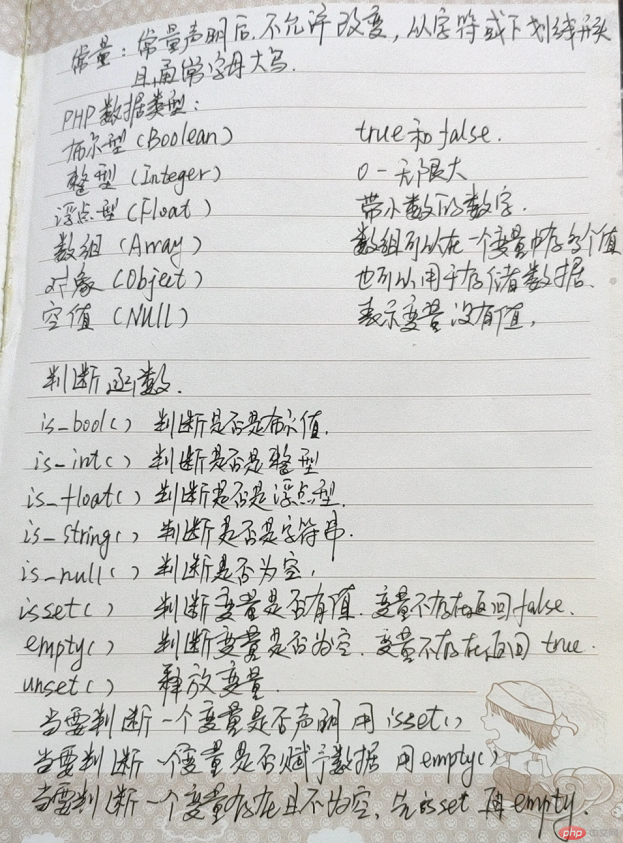 常量：常量声明后，不允许改变，从字符或下划线开头
且通常字母大写.
PHP数据类型：
布尔型（Boolean） true和false.
整型（Integer） 0-无限大
浮点型（Float） 带小数的数字.
数组（Array） 数组可以在一个变量中存多个值
对象（Object） 也可以用于存储数据.
空值（Null） 表示变量没有值.
判断函数.
is_bool() 判断是否是布尔值.
is_int() 判断是否是整型
is_float() 判断是否是浮点型.
is_string() 判断是否是字符串.
is_null() 判断是否为空.
isset() 判断变量是否有值.变量不存在返回false.
empty() 判断变量是否为空.变量不存在返回true.
unset() 释放变量.
当要判断一个变量是否声明 用isset()
当要判断一个变量是否赋予数据 用empty()
当要判断一个变量存在且不为空,先isset 再empty.
php中文网